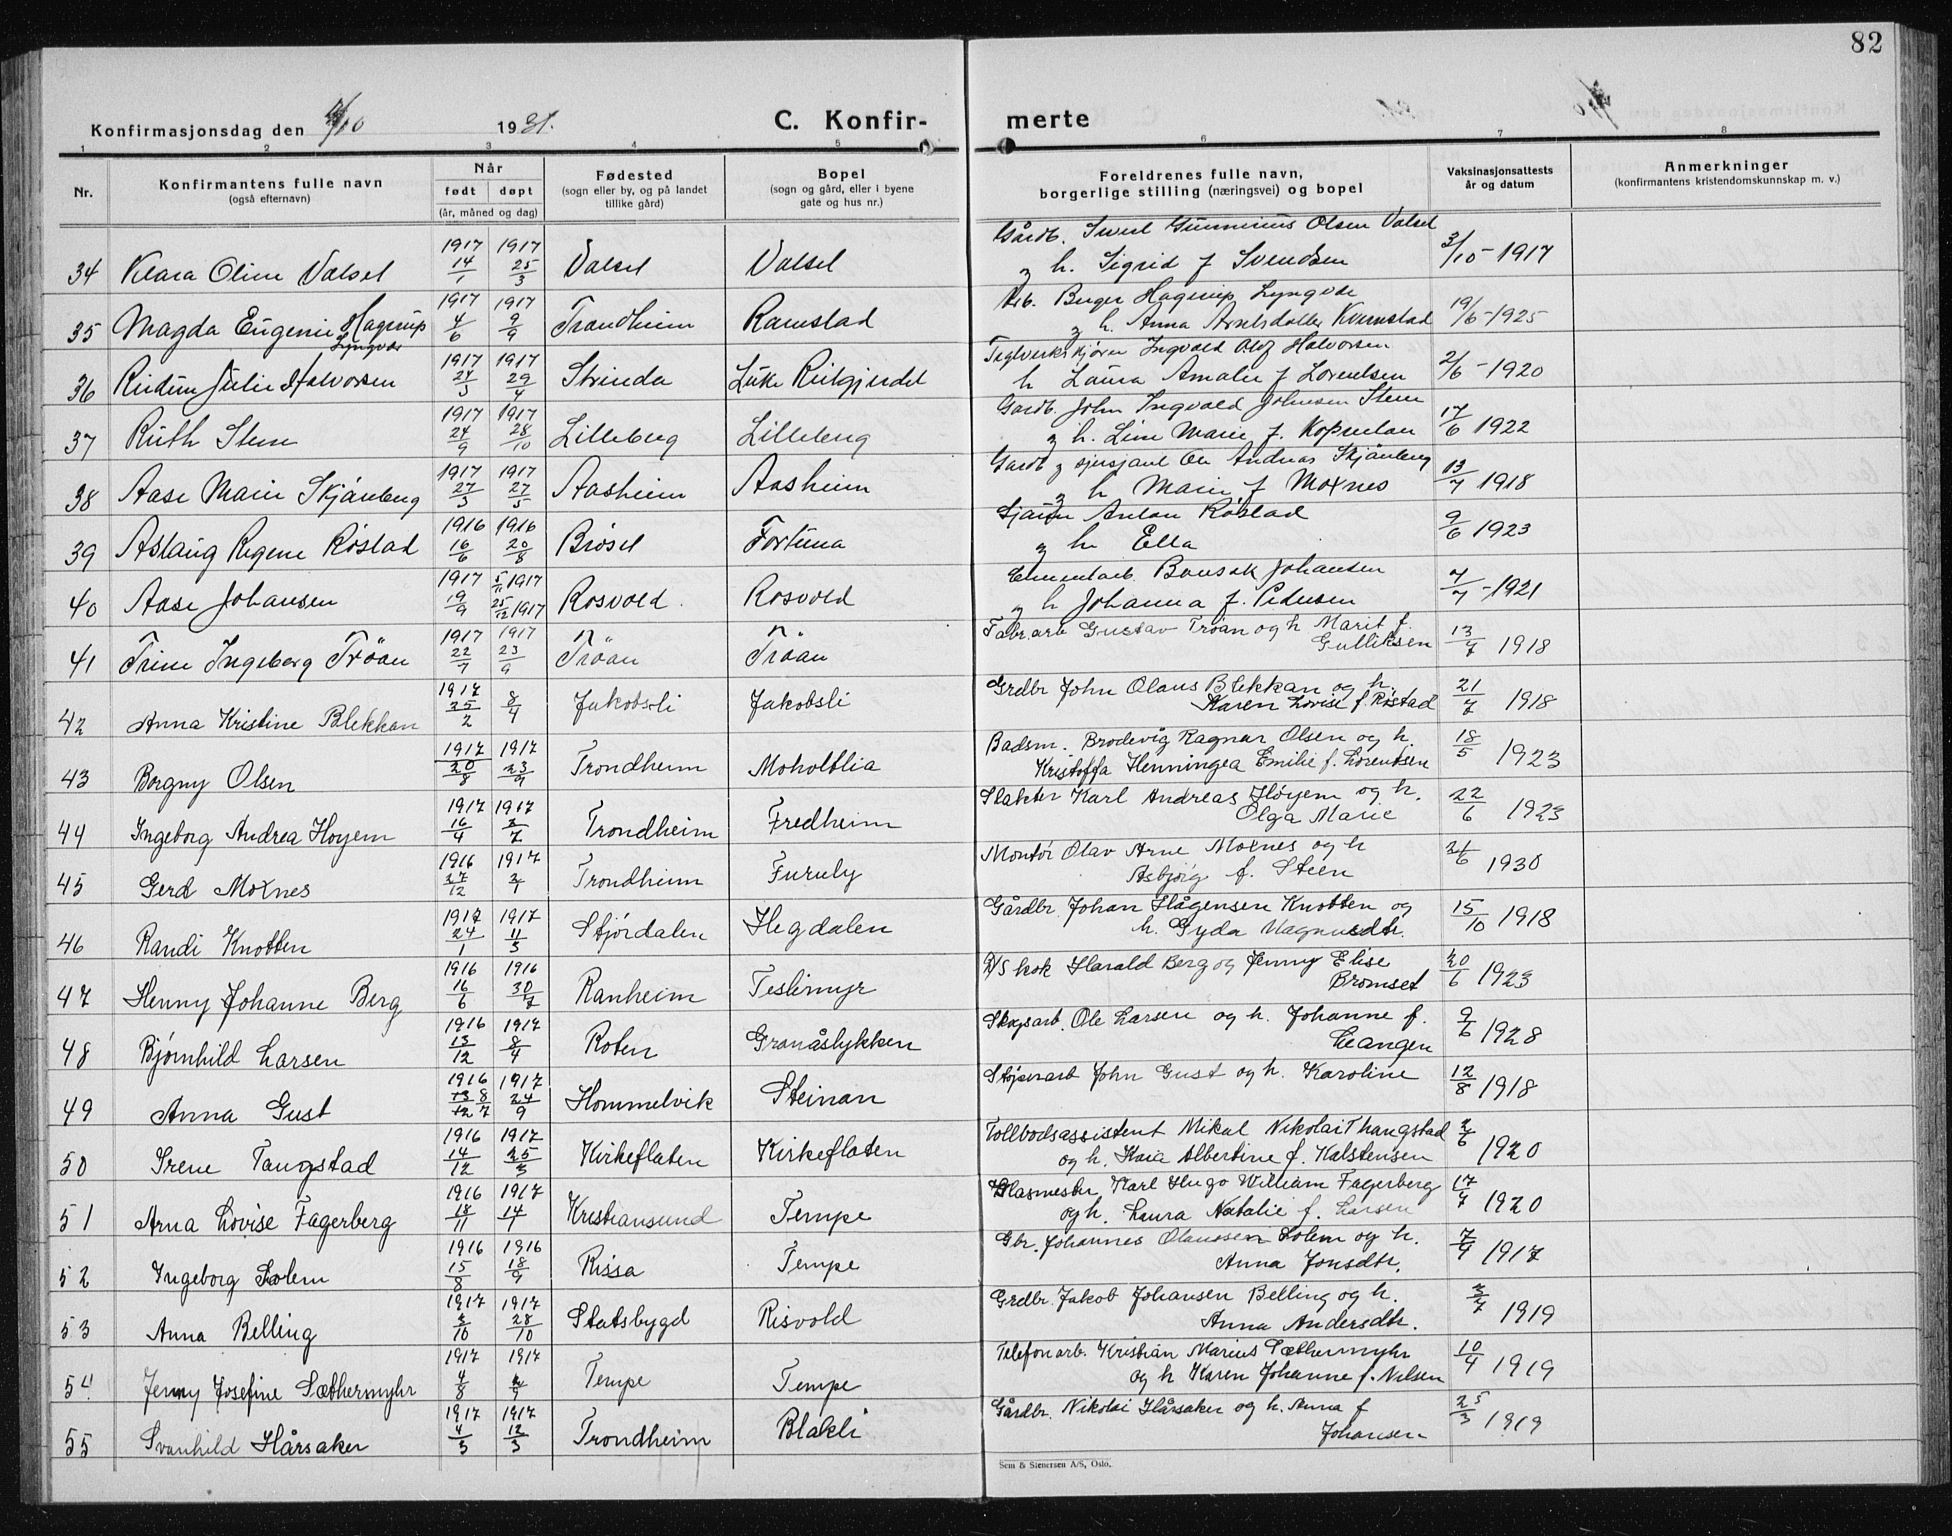 82
Konfirmasjonsdag den 4/10 1931.
C. Konfir- merte
1 2 3 4 5 6 7 8
Nr.
Konfirmantens fulle navn
(også efternavn)
Når
født døpt
(år, måned og dag)
Fødested
(sogn eller by, og på landet
tillike gård)
Bopel
(sogn og gård, eller i byene
gate og hus nr.)
Foreldrenes fulle navn,
borgerlige stilling (næringsvei) og bopel
Vaksinasjonsattests
år og datum
Anmerkninger
(konfirmantens kristendomskunnskap m. v.)
34 Klara Oline Valsel 1917 14/1 1917 25/3 Valsel Valsel Gårdb. Gunnerius Olsen Valsel
og h. Sigrid f Svendsen 3/10-1917
35 Magda Eugenie Hagerup 1917 4/6 1917 9/9 Trondheim Ramstad Arb. Birger Hagerup Lyngvær
Lyngvær og h. Anna Kvernstad 19/6-1925
36 Julie Halvorsen 1917 24/3 1917 29/4 Strinda Ingvald Olof Halvorsen
h Laura Amalie f Lorentsen 2/6-1920
37 Ruth Stene 1917 24/9 1917 28/10 Lilleberg Lilleberg Gardb. John Ingvald Johnsen Stene
og h. Line Marie f. 17/6 1922
38 Aase Marie Skjånberg 1917 27/3 1917 27/5 Aasheim Aasheim Gardb og Ole Andreas Skjånberg
og h Marie f Moxnes 13/7 1918
39 Aslaug Regene Røstad 1916 16/6 1916 20/8 Brøset Fortuna Anton Røstad
og h. Ella 9/6 1923
40 Aase Johansen 1917 19/9 5/11 1917 25/12 1917 Rosvold. Rosvold Johansen
og h Johanna f. Pedersen 7/7-1921
41 Trine Ingeborg Trøan 1917 22/7 1917 23/9 Trøan Trøan Fabr.arb Gustav Trøan og h Marit f.
Gulliksen 13/7 1918
42 Anna Kristine Blekkan 1917 25/2 8/4 Jakobsli Jakobsli Grdbr John Olaus Blekkan og h.
Karen Lovise f. Røstad 21/7 1918
43 Borgny Olsen 1917 20/8 1917 23/9 Trondheim Moholtlia Badsm. Brodevig Ragnar Olsen og h
Kristoffa Henningea Emilie f. Lorentsen 18/5 1923
44 Ingeborg Andrea Hoyem 1917 16/4 1917 Trondheim Fredheim Slakter Karl Andreas Høyem og h.
Olga Marie 22/6 1923
45 Gerd Moxnes 1916 27/12 1917 Trondheim Furuly Montør Olav Arne Moxnes og h
Asbjørg f. Steen 21/6 1930
46 Randi Knotten 1917 24/1 1917 11/3 Stjørdalen Hegdalen Gårdbr. Johan Hågensen Knotten og
h. Gyda Magnusdtr. 15/10 1918
47 Henny Johanne Berg 1916 16/6 1916 30/7 Ranheim Teslimyr D/S kok Harald Berg og Jenny Elise
Bromset 20/6 1923
48 Bjørnhild Larsen 1916 13/12 1917 8/4 Roten Granåslykken Skogsarb. Ole Larsen og h. Johanne f.
Leangen 9/6 1928
49 Anna Gust 1916 13/12 8/7 1917 24/9 Hommelvik Steinan Støperarb John Gust og h. Karoline 12/8 1918
50 Irene Tangstad 1916 14/12 1917 25/3 Kirkeflaten Kirkeflaten Tollbodsassistent Mikal Nikolai Thangstad
og h. Kaia Albertine f. Kalstensen 2/6 1920
51 Arna Lovise Fagerberg 1916 18/11 1917 14/1 Kristiansund Tempe Glasmester Karl Hugo William Fagerberg
og h. Laura Natalie f. Larsen 17/7 1920
52 Ingeborg Solem 1916 15/8 1916 18/9 Rissa Tempe Gbr. Johannes Olaussen Solem og h.
Anna Jonsdtr. 7/9 1917
53 Anna Belling 1917 2/10 1917 28/10 Statsbygd Risvold Grdbr. Jakob Johansen Belling og h.
Anna Andersdtr. 3/7 1919
54 Jenny Josefine Sæthermyhr 1917 4/8 1917 2/9 Tempe Tempe Telefonarb. Kristian Marius Sæthermyhr
og h Karen Johanne f. Nilsen 10/9 1919
55 Svanhild Hårsaker 1917 4/3 1917 12/3 Trondheim Blakli Gårdbr. Nikolai Hårsaker og h. Anna f
Johansen 25/3 1919
Sem & Stenersen A/S, Oslo.